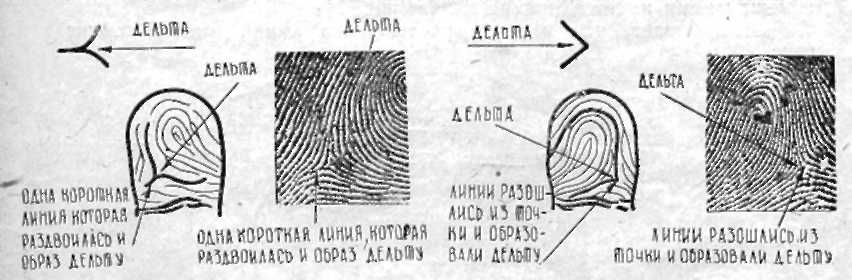 ДЕЛЬТА
ДЕЛЬТА
ДЕЛЬТА
ОДНА КОРОТКАЯ
ЛИНИЯ КОТОРАЯ
РАЗДВОИЛАСЬ И
ОБРАЗ ДЕЛЬТУ
ОДНА КОРОТКАЯ ЛИНИЯ, КОТОРАЯ
РАЗДВОИЛАСЬ И ОБРАЗ ДЕЛЬТУ
ДЕЛЬТА
ДЕЛЬТА
ДЕЛЬТА
ЛИНИИ РАЗОШ-
ЛИСЬ ИЗ ТОЧ-
КИ И ОБРАЗО-
ВАЛИ ДЕЛЬТУ
ЛИНИИ РАЗОШЛИСЬ ИЗ
ТОЧКИ И ОБРАЗОВАЛИ ДЕЛЬТУ